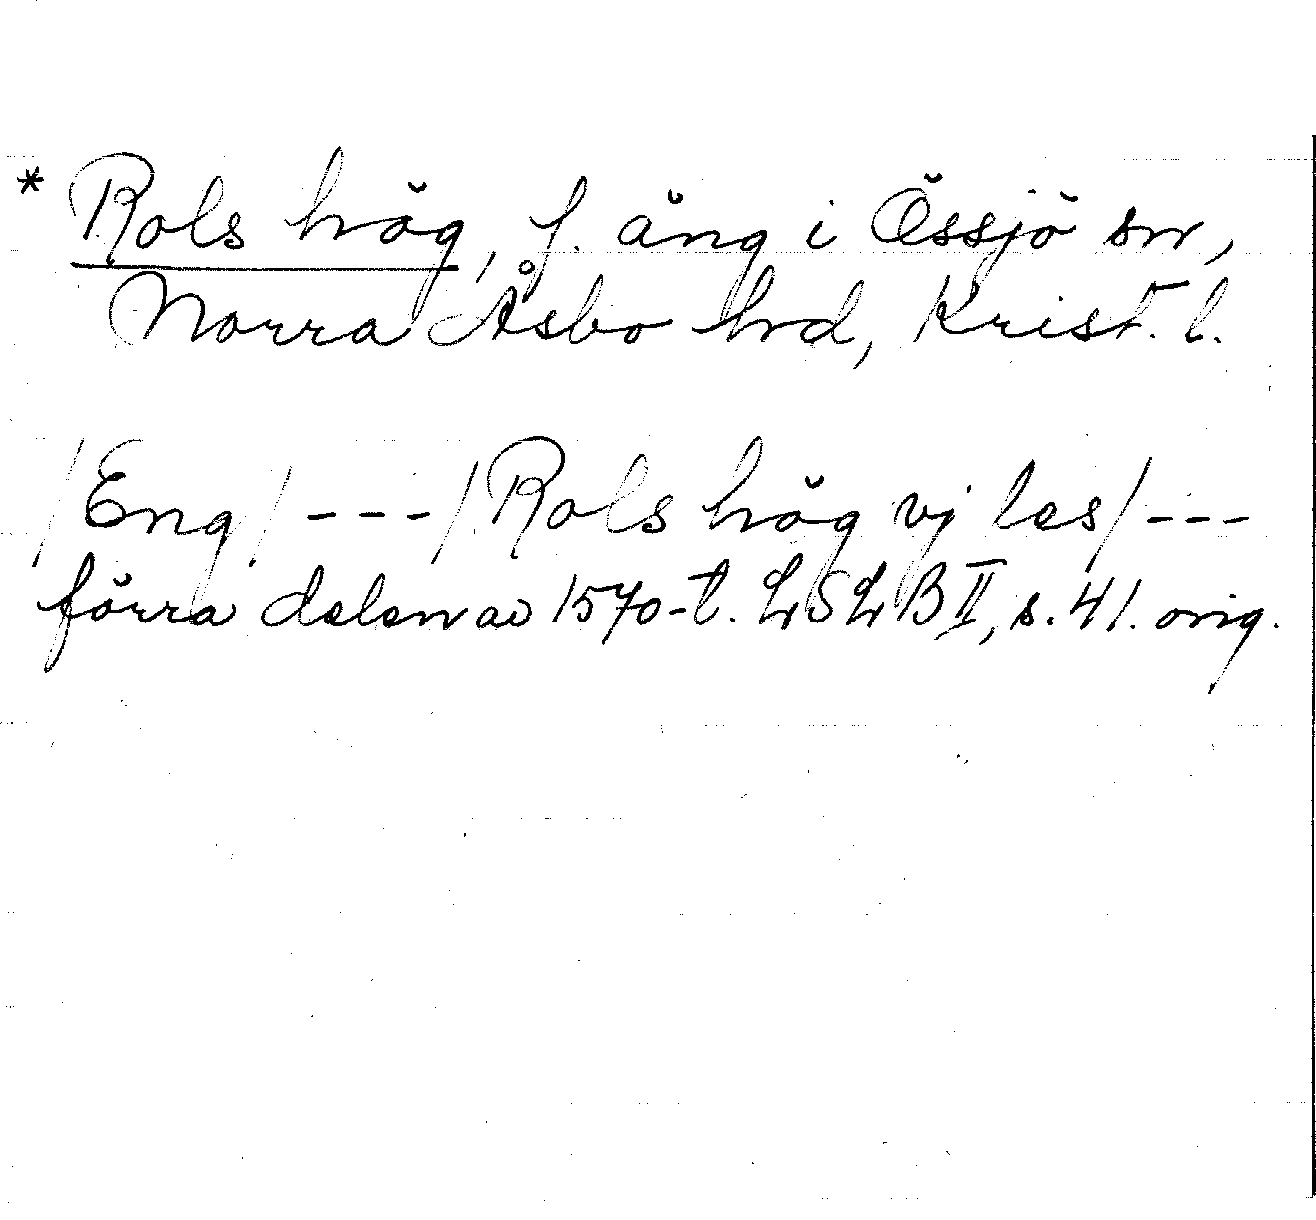 * Rols hög, f. äng i Össjö sn,
Norra Åsbo hd, Krist. l.
/Eng/ ---/Rols hög vj les/---
förra delen av 1570-t. LSLB II, s. 41. orig.